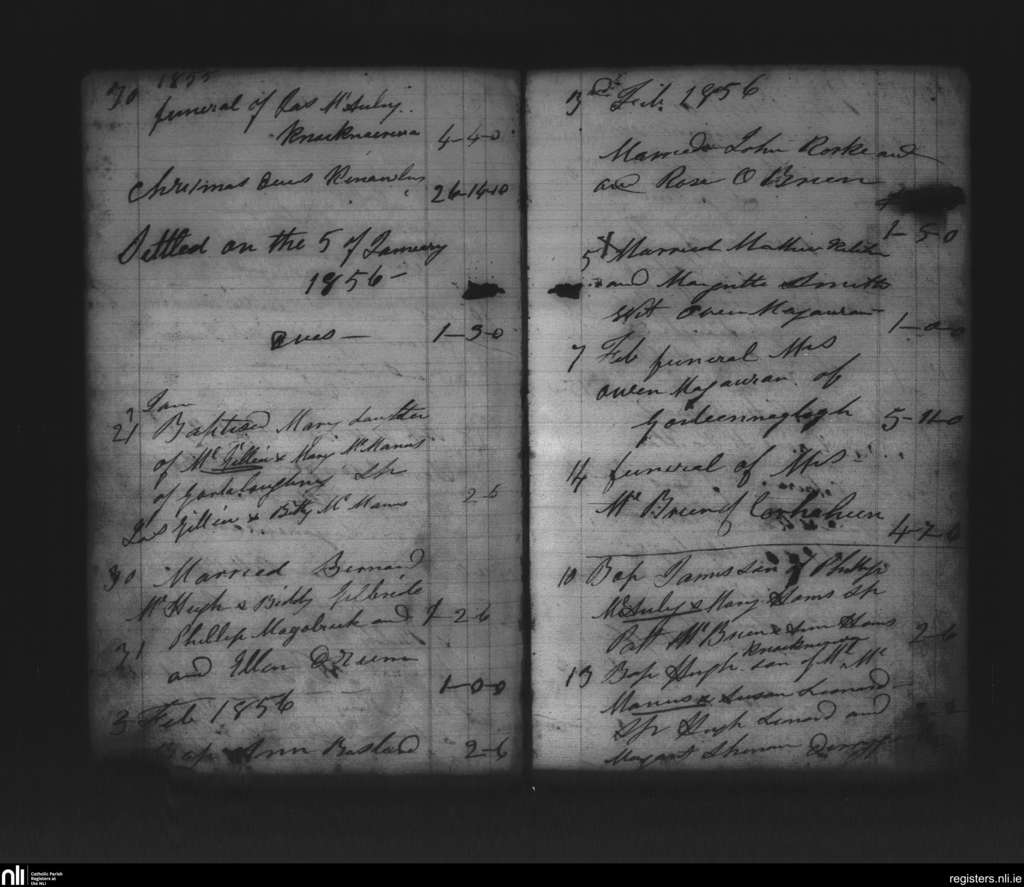 1855
30
funeral of Pas McAuly
4-4-0
Christmas Dues
26-14-10
Settled on the 5 of January
1856 -
Dues - 1-3-0
Jan
21 Baptised Mary daughter
of Ml Gillin & Mary McManus
of Sp
Jas Gillin & Biddy McManus 2-6
30 Married Bernard
McHugh & Biddy Gilbride
Phillip and 7-2-6
31
and Ellen
1-0-0
3 Feb 1856
Bap Ann 2-6
3rd Feb. 1856
Married John Rorke and
and Rose O Brien
1-5-0
5 Married Mathew
and Margritte Smith
Wit Owen Magauran
1-0-0
7 Feb funeral Mrs
Owen Magauran of
5-11-0
14 funeral of Mrs
McBrien of
4-7-6
10 Bap James son of Phillip
McAuly & Mary Sp
Patt McBrien & Ann 2-6
13 Bap Hugh son of Ml Mc
Manus & Susan Leonard
Sp Hugh Lenard and
Margaret
nli
Catholic Parish
Registers at
the NLI
registers.nli.ie